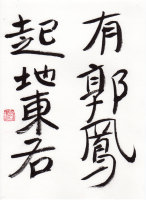 有郭鳳
起地東君